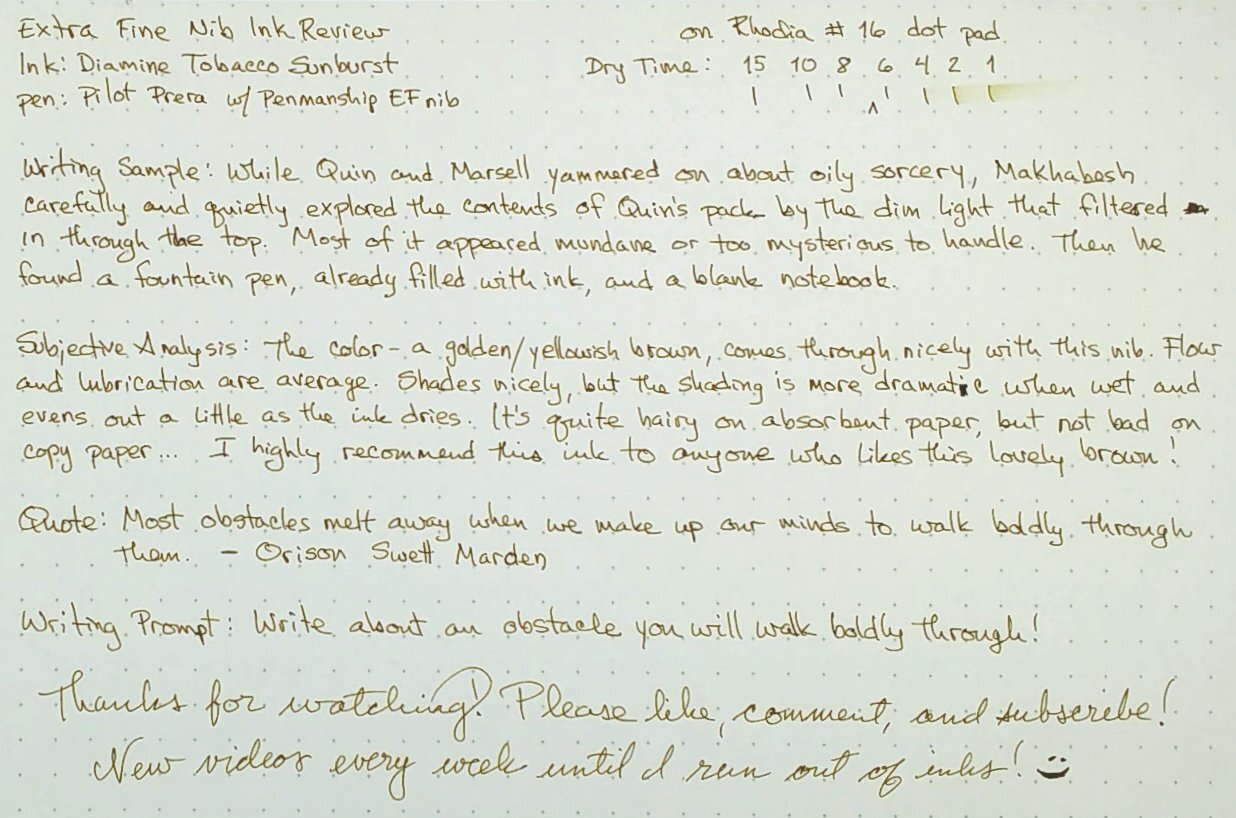 Extra Fine Nib Ink Review on Rhodia # 16 dot pad
Ink: Diamine Tobacco Sunburst Dry Time: 15 10 8 6 4 2 1
pen: Pilot Prera w/ Penmanship EF nib
Writing Sample: While Quin and Marsell yammered on about oily sorcery, Makhabesh
carefully and quietly explored the contents of Quin's pack by the dim light that filtered
in through the top. Most of it appeared mundane or too mysterious to handle. Then he
found a fountain pen, already filled with ink, and a blank notebook.
Subjective Analysis: The color - a golden/yellowish brown, comes through nicely with this nib. Flow
and lubrication are average. Shades nicely, but the shading is more dramatic when wet and
evens out a little as the ink dries. It's quite hairy on absorbent paper, but not bad on
copy paper... I highly recommend this ink to anyone who likes this lovely brown!
Quote: Most obstacles melt away when we make up our minds to walk boldly through
them. - Orison Swett Marden
Writing Prompt: Write about an obstacle you will walk boldly through!
Thanks for watching! Please like, comment, and subscribe!
New videos every week until I run out of inks!